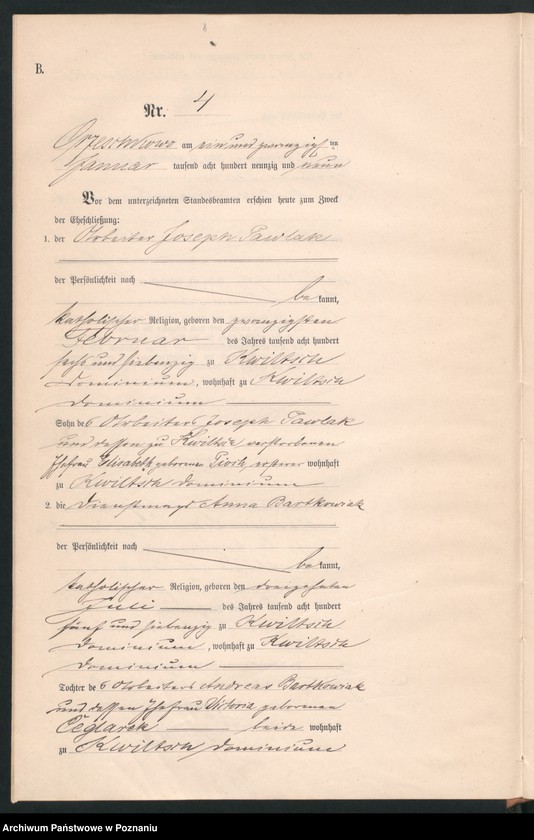 B.
Nr. 4
Orzeschkowo am ein und zwanzigsten
Januar tausend acht hundert neunzig und neun
Vor dem unterzeichneten Standesbeamten erschien heute zum Zweck
der Eheschließung:
1. der Arbeiter Joseph Pawlak
der Persönlichkeit nach
be kannt,
katholischer Religion, geboren den zwanzigsten
Februar des Jahres tausend acht hundert
sechs und siebenzig zu Kwiltsch
Dominium, wohnhaft zu Kwiltsch
Dominium
Sohn des Arbeiters Joseph Pawlak
und dessen zu Kwiltsch verstorbenen
Ehefrau Elisabeth geborenen ersterer wohnhaft
zu Kwiltsch Dominium
2. die Dienstmagd Anna Bartkowiak
der Persönlichkeit nach
be kannt,
katholischer Religion, geboren den dreizehnten
Juli des Jahres tausend acht hundert
fünf und siebenzig zu Kwiltsch
Dominium, wohnhaft zu Kwiltsch
Dominium
Tochter des Arbeiters Andreas Bartkowiak
und dessen Ehefrau Viktoria geborenen
Ceglarek beide wohnhaft
zu Kwiltsch Dominium
Archiwum Państwowe w Poznaniu